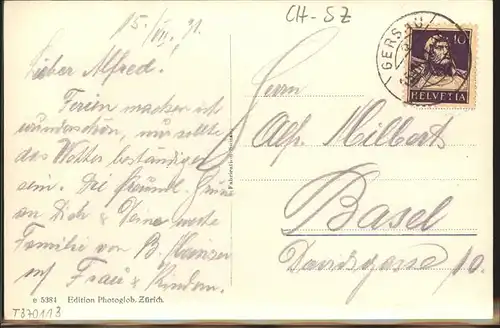 15. VII. 31.
CH-SZ
GERSAU
10
HELVETIA
Lieber Alfred.
Ferien machen ist
wunderschön, nur sollte
das Wetter beständiger
sein. Die freundl. Grüsse
an Dich & Deine werte
Familie von B.
m/ Frau & Kindern.
Herrn
Alf. Milbert
Basel
Davidsgasse 10.
e 5384 Edition Photoglob, Zürich.
T370113